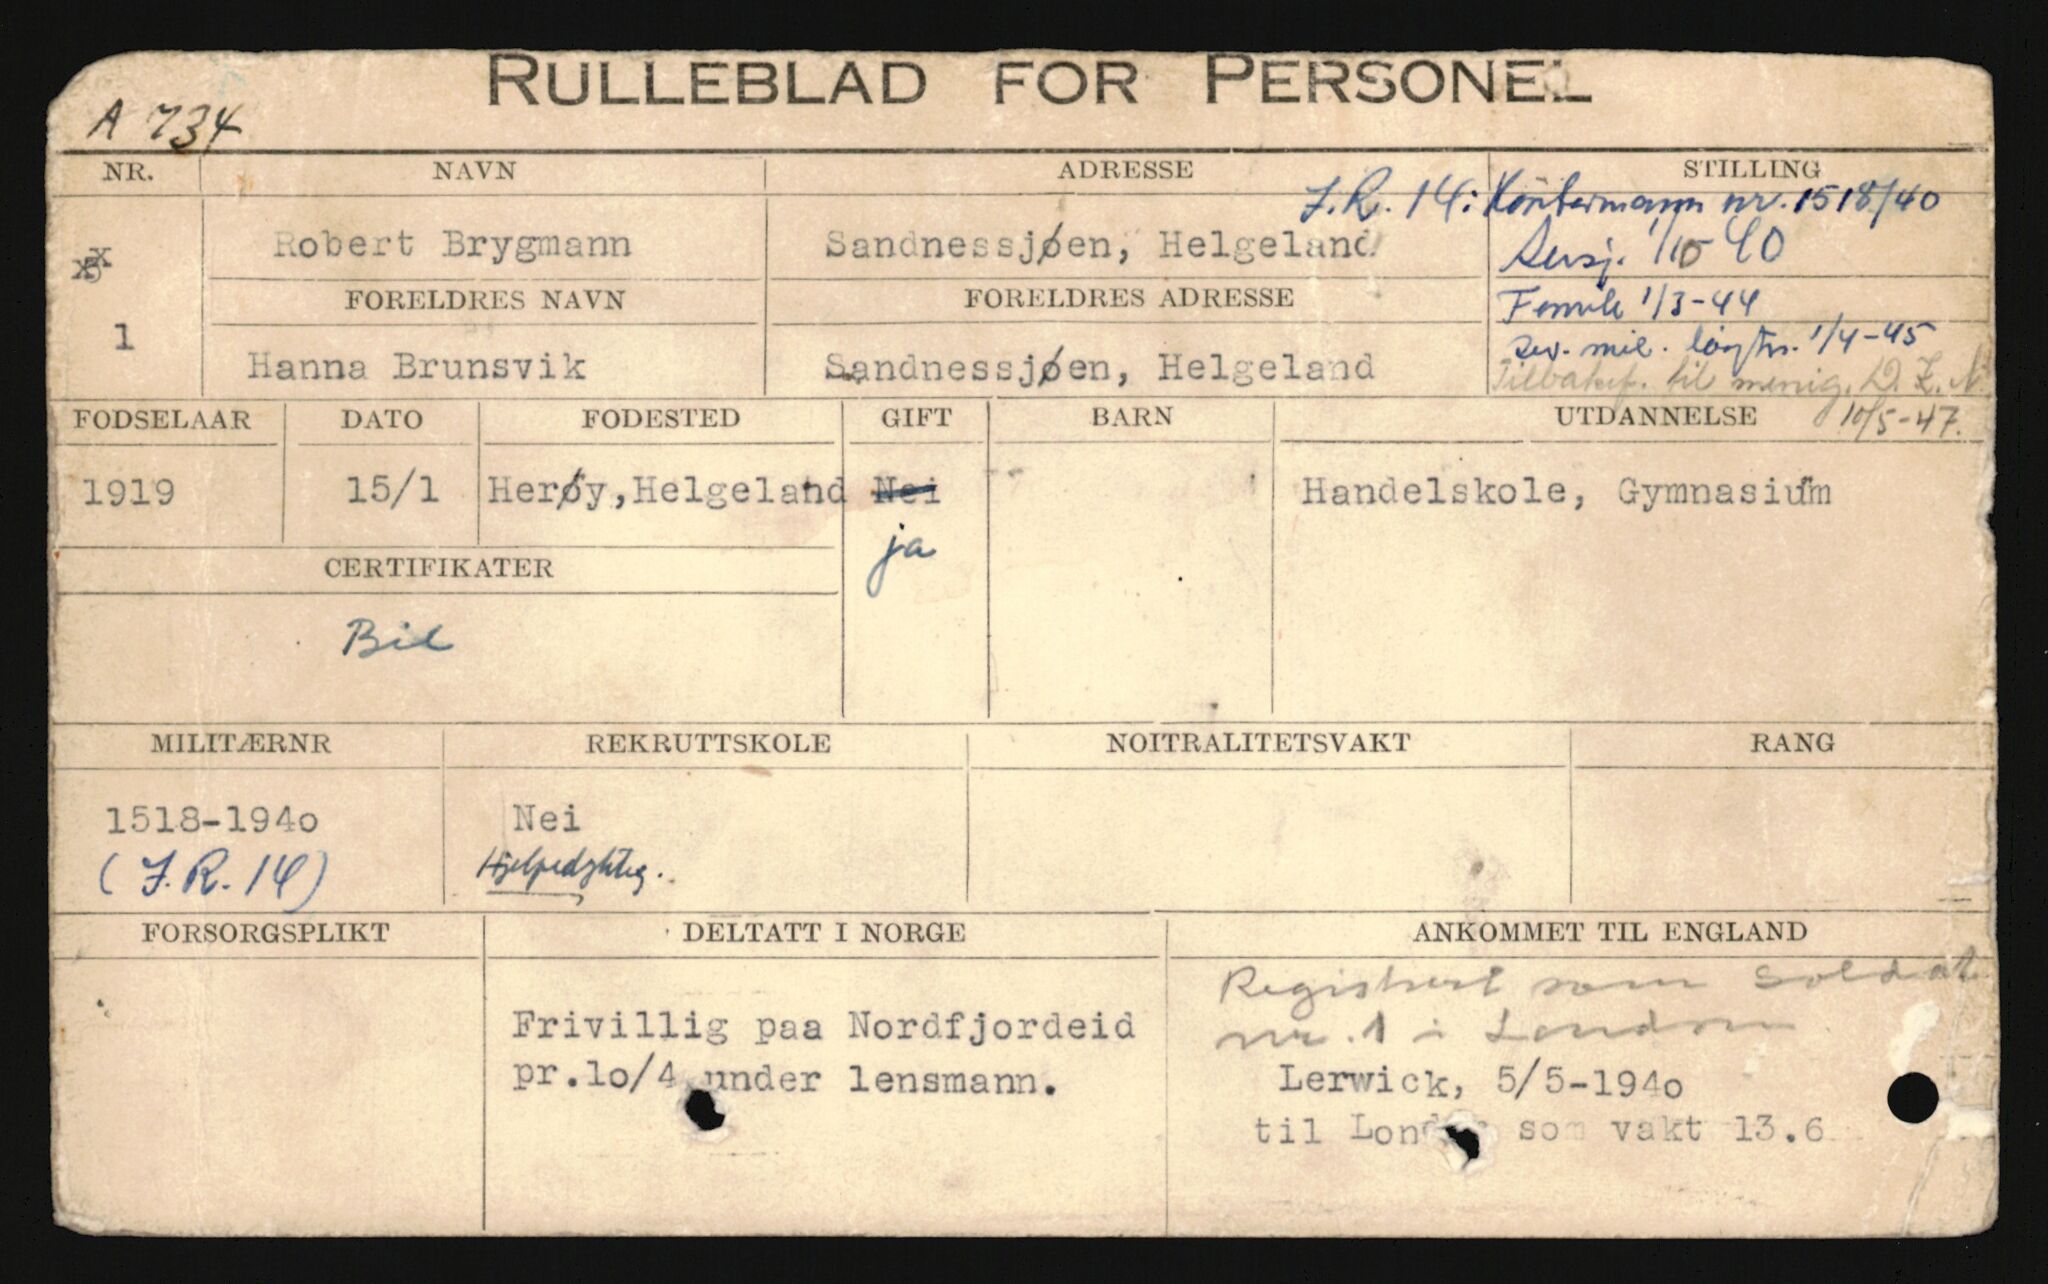 RULLEBLAD FOR PERSONEL
A 734
NR. NAVN ADRESSE STILLING
J.R. 14: nr. 1518/40
1
Robert Brygmann
Sandnessjøen, Helgeland
Sersj. 1/10 40
FORELDRES NAVN FORELDRES ADRESSE
Fenrik 1/3-44
Hanna Brunsvik
Sandnessjøen, Helgeland
mil. 1/4-45
til menig.
10/5-47.
FODSELAAR DATO FODESTED GIFT BARN UTDANNELSE
1919 15/1 Herøy, Helgeland Nei Handelskole, Gymnasium
ja
CERTIFIKATER
Bil
MILITÆRNR REKRUTTSKOLE NOITRALITETSVAKT RANG
1518-194o Nei
(J.R. 14)
FORSORGSPLIKT DELTATT I NORGE ANKOMMET TIL ENGLAND
Registrert som soldat
nr. 1 i London
Frivillig paa Nordfjordeid
pr.lo/4 under lensmann.
Lerwick, 5/5-194o
til London som vakt 13.6